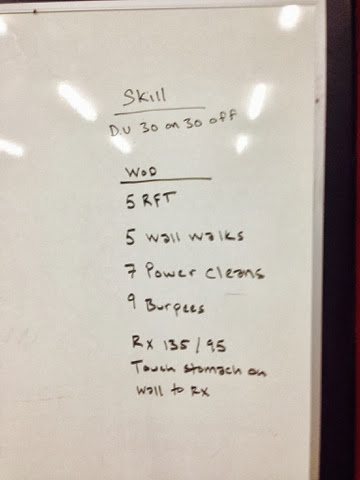 Skill
D.U 30 on 30 off
WOD
5 RFT
5 wall walks
7 Power cleans
9 Burpees
Rx 135/95
Touch stomach on
wall to Rx